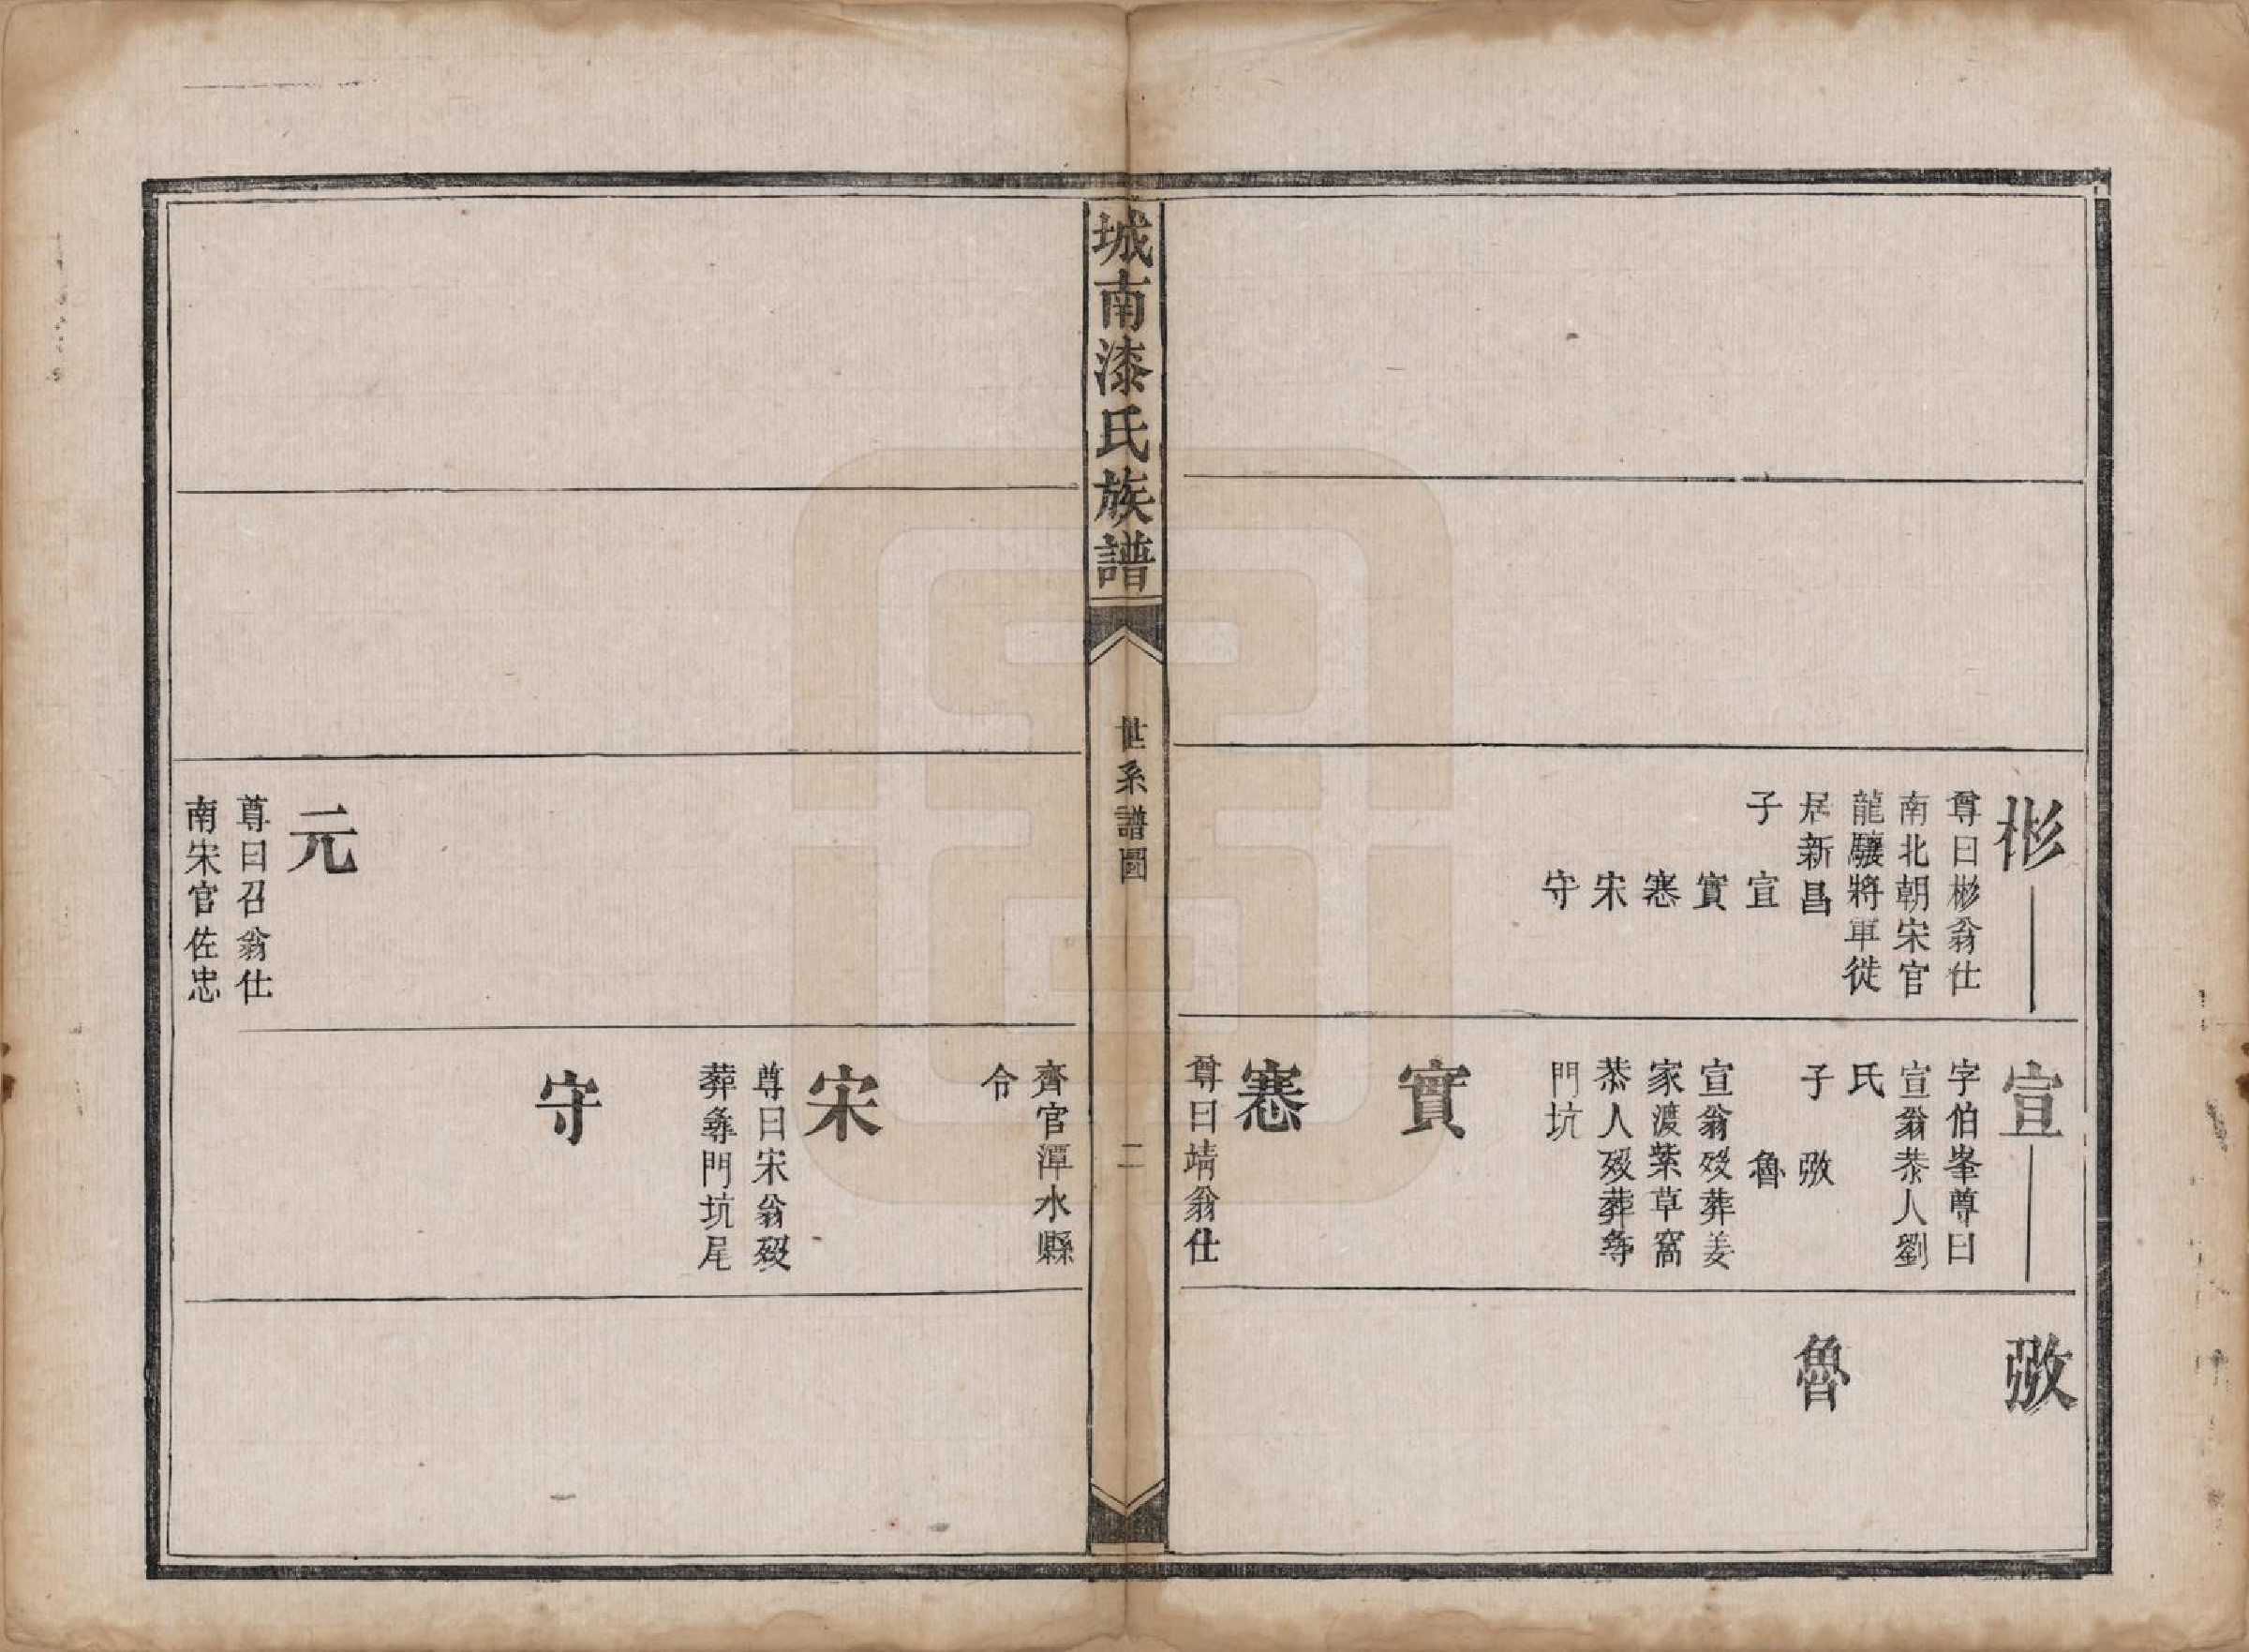 彬
尊曰彬翁仕
南北朝宋官
龍驤將軍徙
居新昌
子 宣
實
窸
宋
守
宣
字伯峯尊曰
宣翁恭人劉
氏
子 弢
魯
宣翁歿葬姜
家渡紫草窩
恭人歿葬夆
門坑
實
窸
尊曰靖翁仕
弢
魯
城南漆氏族譜
世系譜圖
二
元
尊曰召翁仕
南宋官佐忠
齊官潭水縣
令
宋
尊曰宋翁歿
葬夆門坑尾
守